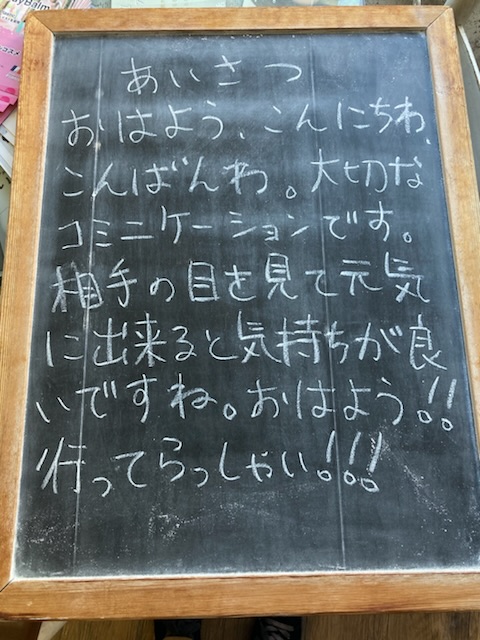 あいさつ
おはよう、こんにちわ、
こんばんわ。大切な
コミニケーションです。
相手の目を見て元気
に出来ると気持ちが良
いですね。おはよう!!
行ってらっしゃい!!!